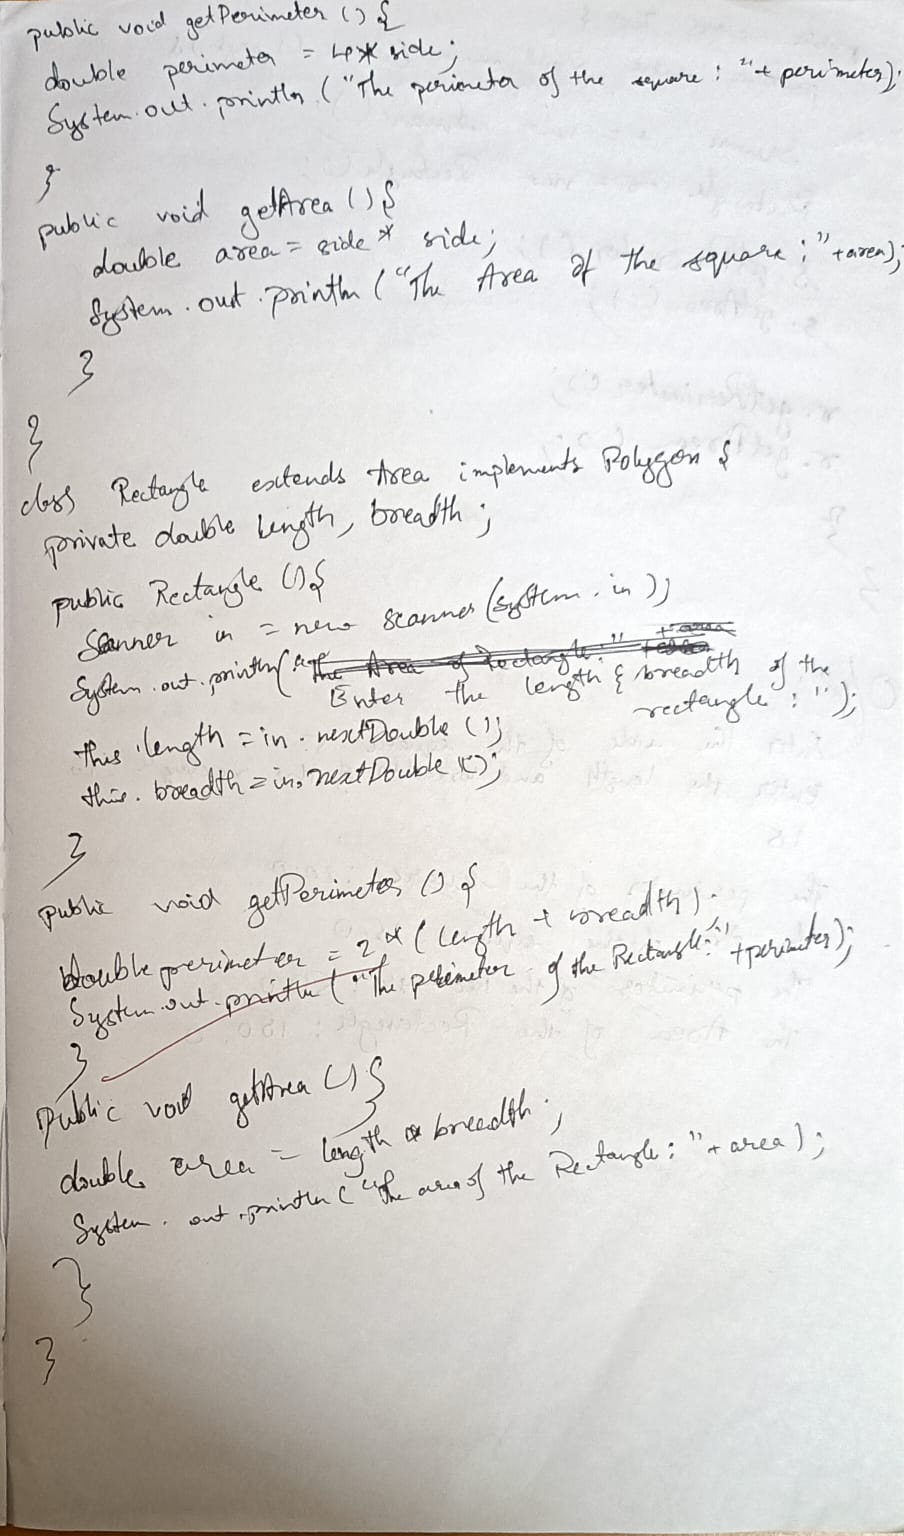 public void getPerimeter () {
double perimeter = 4* side;
System.out.println ("The perimeter of the square : "+ perimeter);
}
public void getArea () {
double area = side * side;
System.out.println ("The Area of the square : " +area);
}
}
class Rectangle extends Area implements Polygon {
private double length, breadth;
public Rectangle () {
Scanner in = new Scanner (System.in);
System.out.println ("The Area of Rectangle : " + area
Enter the length & breadth of the
rectangle : ");
this.length = in.nextDouble ();
this.breadth = in.nextDouble ();
}
public void getPerimeter () {
double perimeter = 2 * (length + breadth);
System.out.println ("The perimeter of the Rectangle : " +perimeter);
}
public void getArea () {
double area = length * breadth;
System.out.println ("The area of the Rectangle : " + area);
}
}